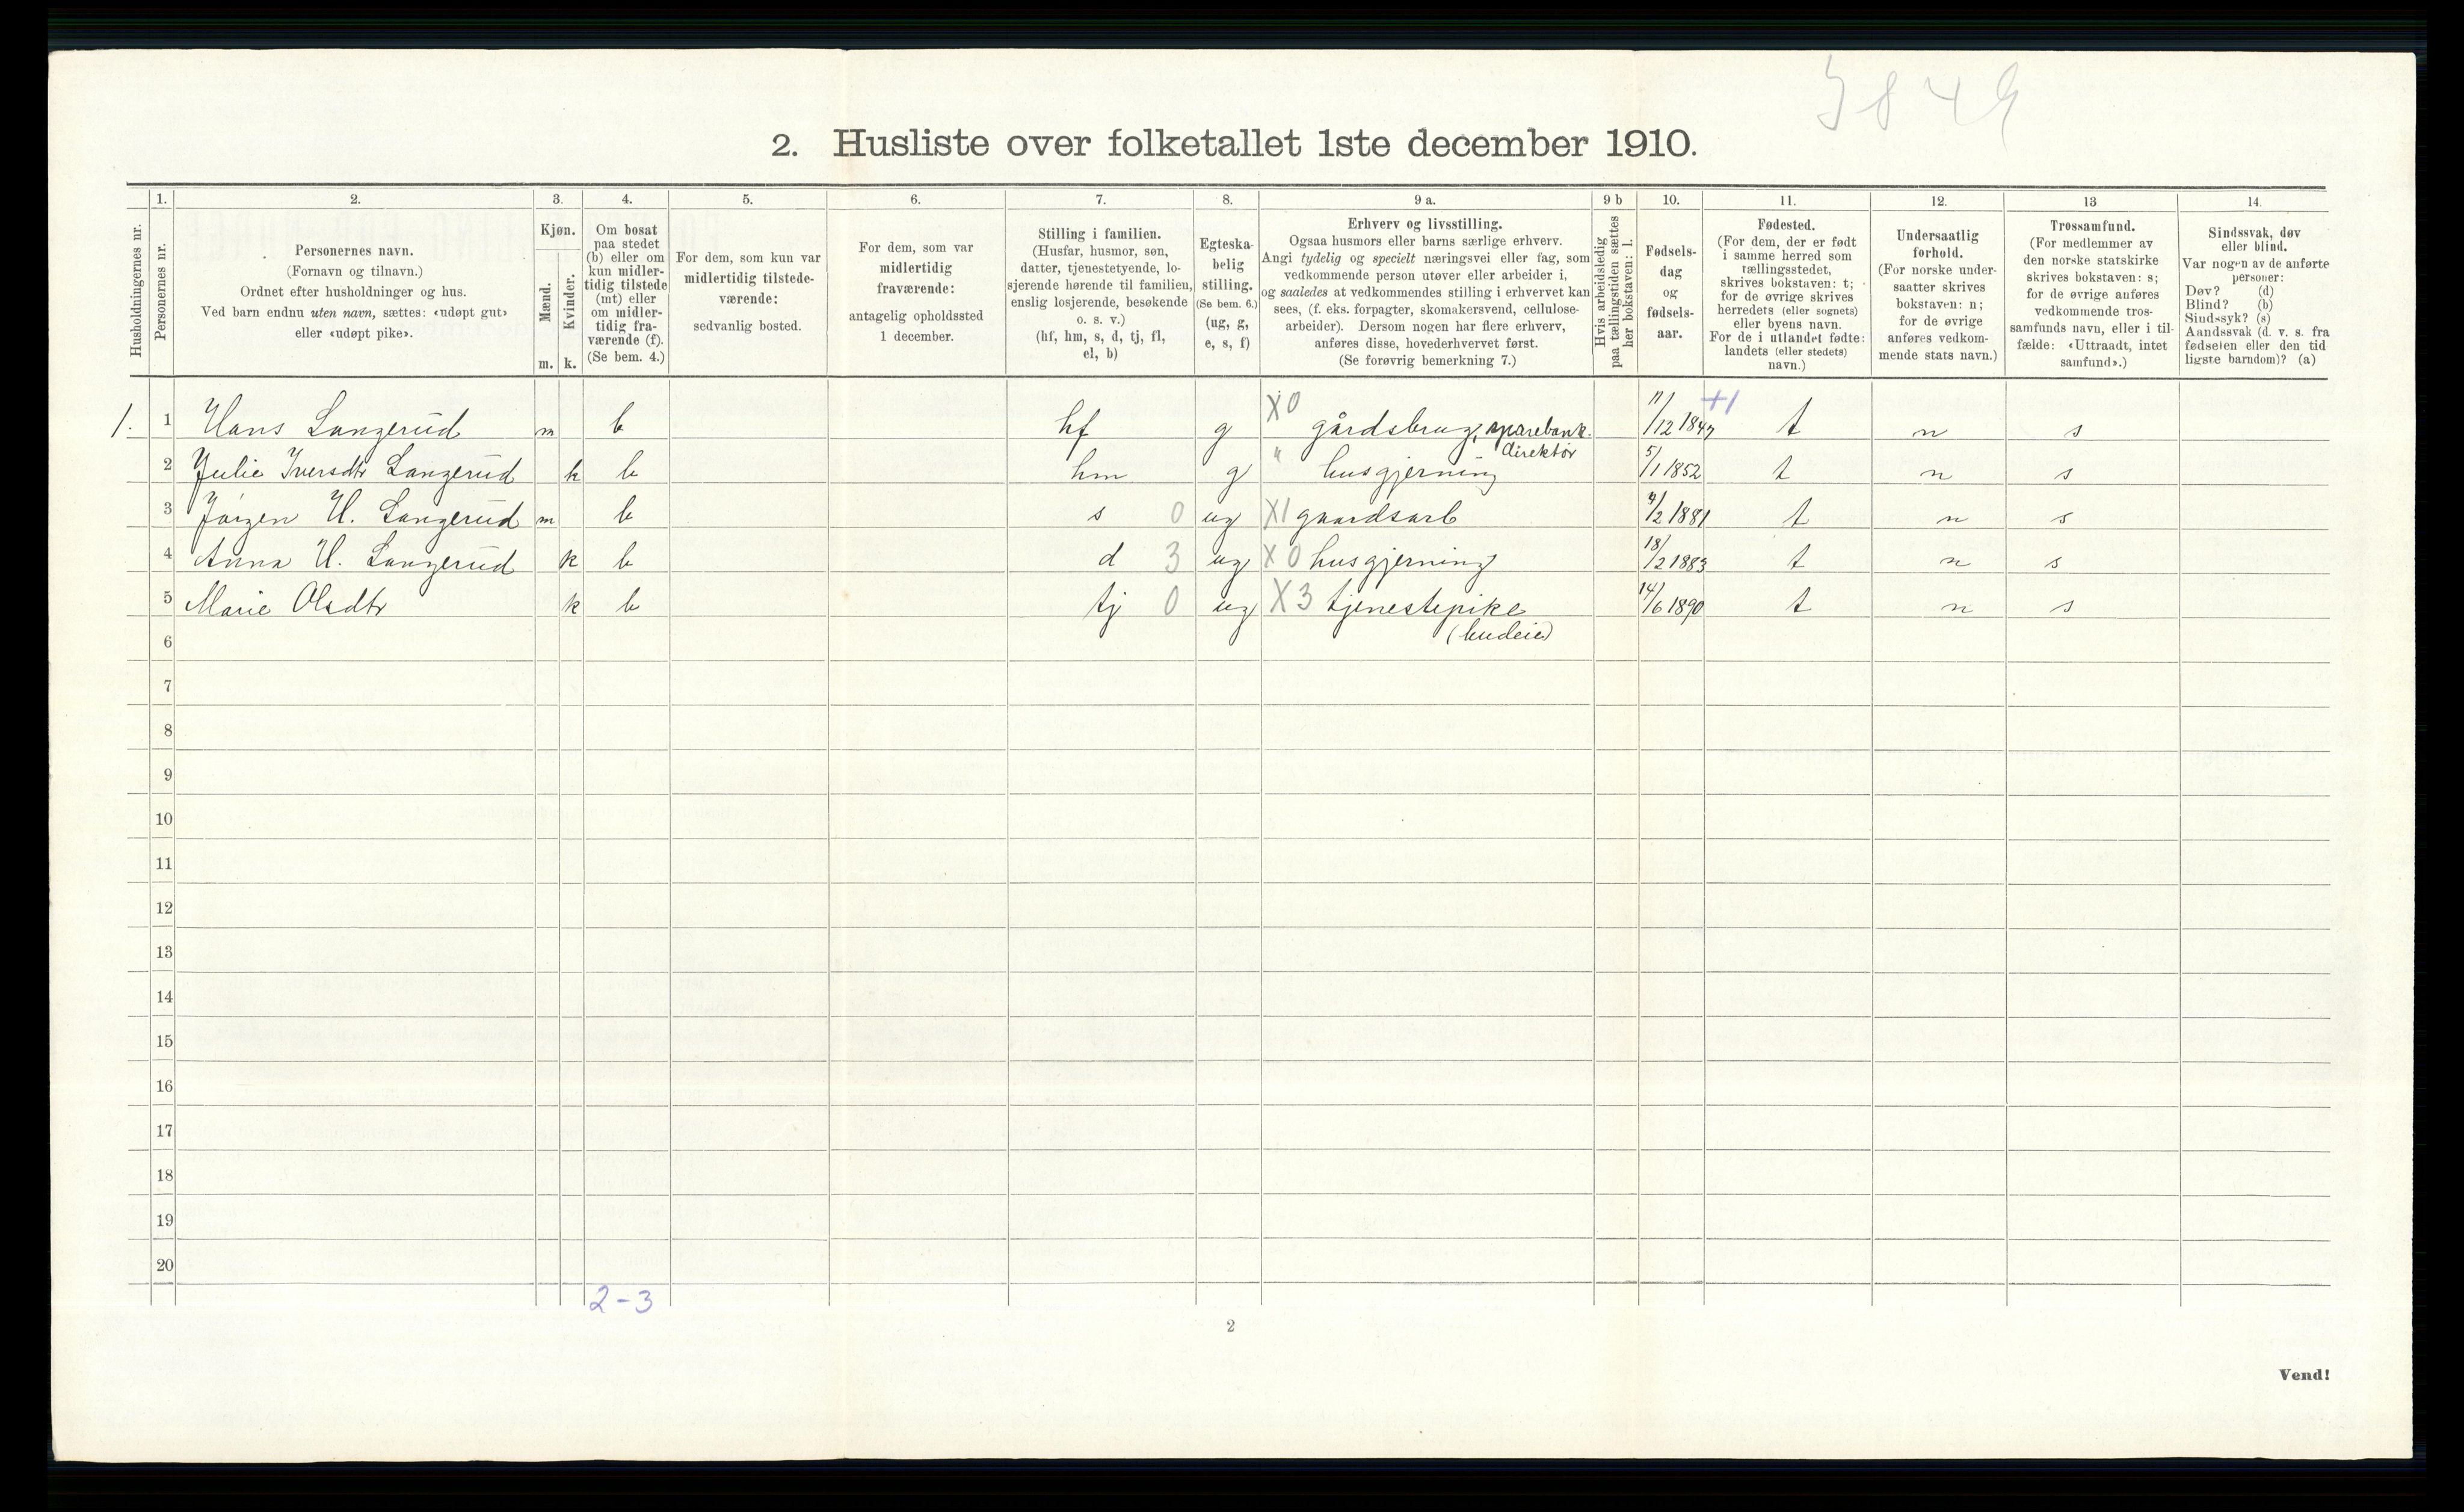 3849
2. Husliste over folketallet 1ste december 1910.
Husholdningernes nr.
1. Personernes nr.
2. Personernes navn.
(Fornavn og tilnavn.)
Ordnet efter husholdninger og hus.
Ved barn endnu uten navn, sættes: «udøpt gut»
eller «udøpt pike».
3. Kjøn.
Mænd. m.
Kvinder. k.
4. Om bosat
paa stedet
(b) eller om
kun midler-
tidig tilstede
(mt) eller
om midler-
tidig fra-
værende (f).
(Se bem. 4.)
5. For dem, som kun var
midlertidig tilstede-
værende:
sedvanlig bosted.
6. For dem, som var
midlertidig
fraværende:
antagelig opholdssted
1 december.
7. Stilling i familien.
(Husfar, husmor, søn,
datter, tjenestetyende, lo-
sjerende hørende til familien,
enslig losjerende, besøkende
o. s. v.)
(hf, hm, s, d, tj, fl,
el, b)
8. Egteska-
belig
stilling.
(Se bem. 6.)
(ug, g,
e, s, f)
9 a. Erhverv og livsstilling.
Ogsaa husmors eller barns særlige erhverv.
Angi tydelig og specielt næringsvei eller fag, som
vedkommende person utøver eller arbeider i,
og saaledes at vedkommendes stilling i erhvervet kan
sees, (f. eks. forpagter, skomakersvend, cellulose-
arbeider). Dersom nogen har flere erhverv,
anføres disse, hovederhvervet først.
(Se forøvrig bemerkning 7.)
9 b Hvis arbeidsledig
paa tællingstiden sættes
her bokstaven: l.
10. Fødsels-
dag
og
fødsels-
aar.
11. Fødested.
(For dem, der er født
i samme herred som
tællingsstedet,
skrives bokstaven: t;
for de øvrige skrives
herredets (eller sognets)
eller byens navn.
For de i utlandet fødte:
landets (eller stedets)
navn.)
12. Undersaatlig
forhold.
(For norske under-
saatter skrives
bokstaven: n;
for de øvrige
anføres vedkom-
mende stats navn.)
13 Trossamfund.
(For medlemmer av
den norske statskirke
skrives bokstaven: s;
for de øvrige anføres
vedkommende tros-
samfunds navn, eller i til-
fælde: «Uttraadt, intet
samfund».)
14. Sindssvak, døv
eller blind.
Var nogen av de anførte
personer:
Døv? (d)
Blind? (b)
Sindssyk? (s)
Aandssvak (d. v. s. fra
fødselen eller den tid
ligste barndom)? (a)
1. 1 Hans Langerud m b hf g X0 gårdsbrug, sparebank- 11/12 1847 +1 t n s
direktør
2 Julie Iversdtr Langerud k b hm g " husgjerning 5/1 1852 t n s
3 Jørgen H. Langerud m b s 0 ug X1 gaardsarb 4/2 1881 t n s
4 Anna H. Langerud k b d 3 ug X0 husgjerning 18/2 1883 t n s
5 Marie Olsdtr k b tj 0 ug X3 tjenestepike 14/6 1890 t n s
(budeie)
6
7
8
9
10
11
12
13
14
15
16
17
18
19
20
2-3
2
Vend!